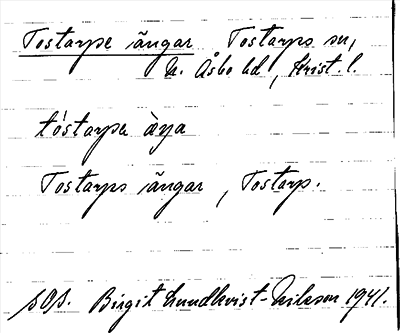 Tostarpe ängar Tostarps sn,
N. Åsbo hd, Krist. l.
tóstarpa àŋa
Tostarps ängar, Tostarp.
Birgit Lundkvist-Nilsson 1941.